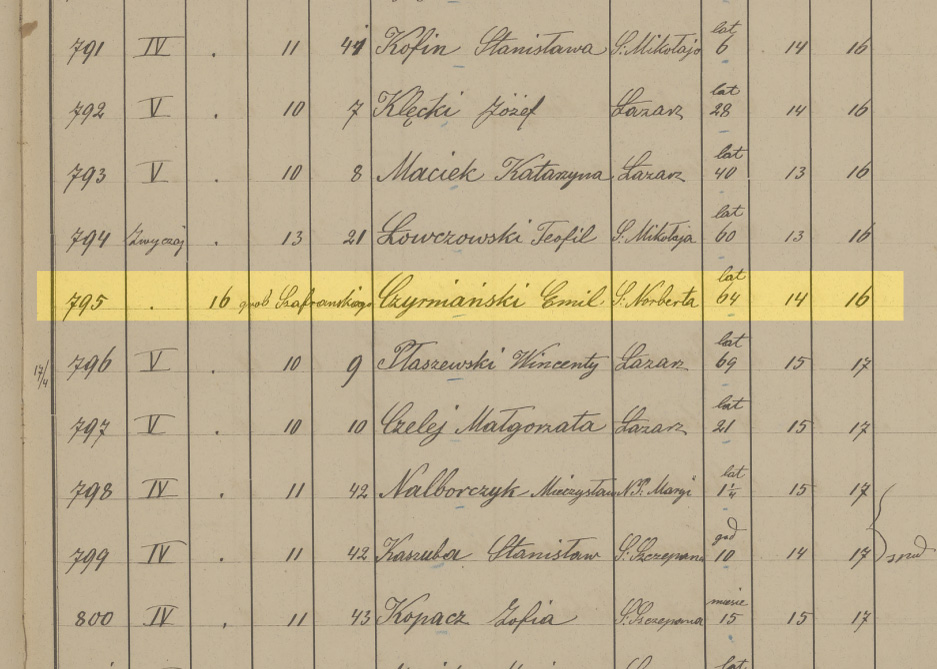 791 IV . 11 41 Kofin Stanisława S. Mikołaja lat 6 14 16
792 V . 10 7 Klęcki Józef Łazarz lat 28 14 16
793 V . 10 8 Maciek Katarzyna Łazarz lat 40 13 16
794 Zwyczaj . 13 21 Łowczowski Teofil S. Mikołaja lat 60 13 16
795 . 16 grób Szafrańskiego Czyrniański Emil S. Norberta lat 64 14 16
17/4 796 V . 10 9 Ptaszewski Wincenty Łazarz lat 69 15 17
797 V . 10 10 Czelej Małgorzata Łazarz lat 21 15 17
798 IV . 11 42 Nalborczyk Mieczysław N.P. Maryi lat 1 1/4 15 17
799 IV . 11 42 Kaszuba Stanisław S. Szczepana god 10 14 17
800 IV . 11 43 Kopacz Zofia S. Szczepana miesię 15 15 17